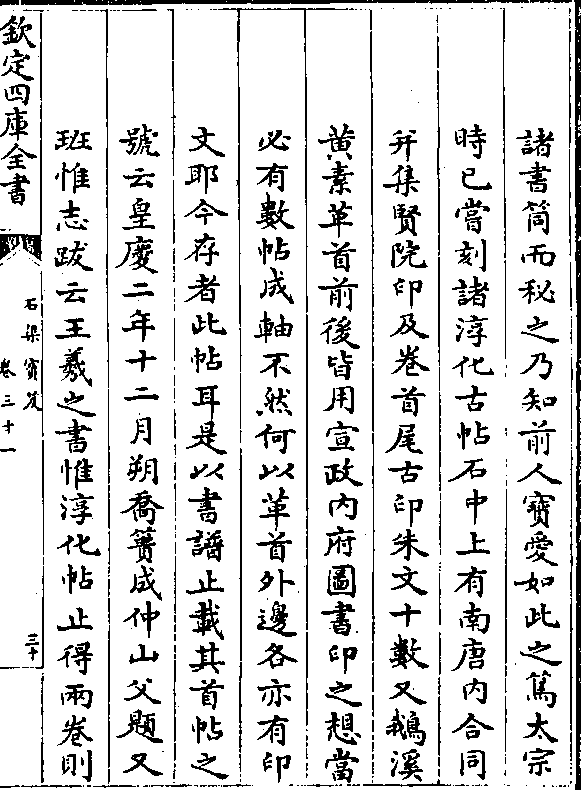 諸書筒而秘之乃知前人寶愛如此之篤太宗
時已嘗刻諸淳化古帖石中上有南唐内合同
并集賢院印及卷首尾古印朱文十數又鵝溪
黄素革首前後皆用宣政内府圖書印之想當
必有數帖成軸不然何以革首外邊各亦有印
文耶今存者此帖耳是以書譜止載其首帖之
號云皇慶二年十二月朔喬簣成仲山父題又
班惟志跋云王羲之書惟淳化帖止得兩卷則
欽定四庫全書
石渠寳笈
卷三十一
三十